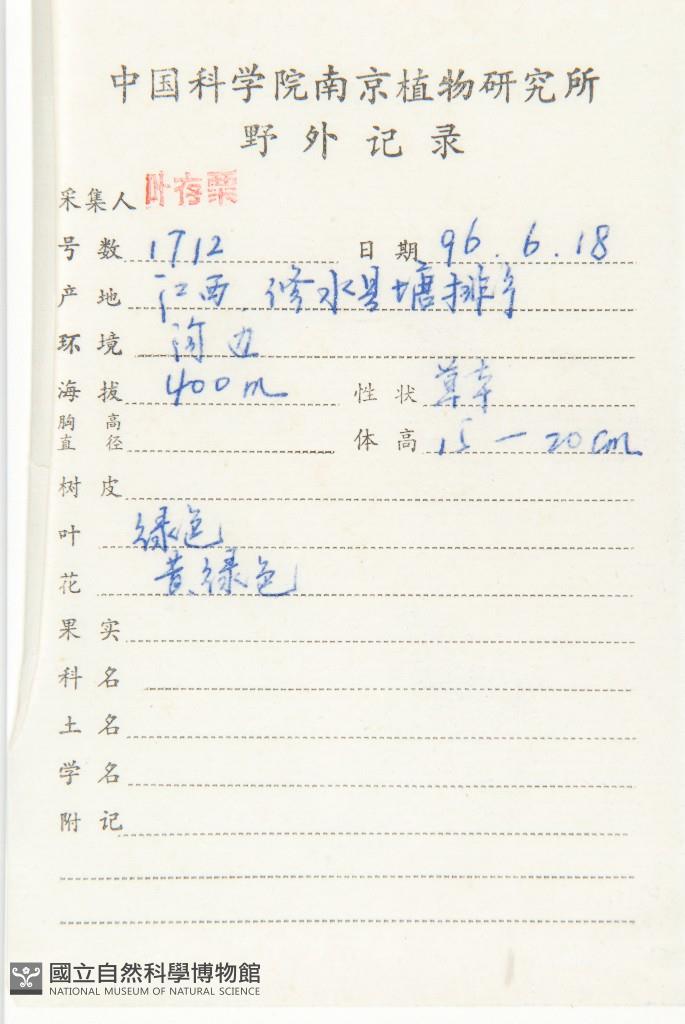 中国科学院南京植物研究所
野外记录
采集人 叶存粟
号数 1712 日期 96.6.18
产地 江西 修水县塘排乡
环境 沟边
海拔 400m 性状 草本
胸高直径 体高 15-20cm
树皮
叶 绿色
花 黄绿色
果实
科名
土名
学名
附记
國立自然科學博物館
NATIONAL MUSEUM OF NATURAL SCIENCE